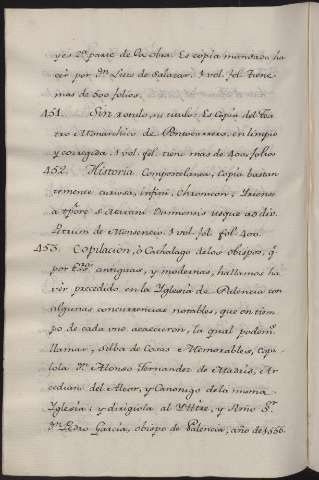 y es 2ª parte de la obra. Es copia mandada ha
cer por Dn. Luis de Salazar. 1 vol. fol. tiene
mas de 500 folios.
451. Sin rotulo, ni titulo: Es Copia del Tea
tro Monarchico de Portocarrero, en limpio
y corregida. 1 vol. fol. tiene mas de 400. folios
452. Historia Compostelana, Copia bastan
temente curiosa, infini, Chronicon: Irienes
a tpõre S. Martini Dumiensis usque ad div.
Petrum de Monsencio. 1 vol. fol. fol. 400.
453. Copilacion, ò Cathalago de los obispos, q̃
por Escrª. antiguas, y modernas, hallamos ha
ver precedido en la Yglesia de Palencia con
algunas concurrencias notables, que en tiem
po de cada uno acaecieron, la qual podem.
llamar, Silba de Cosas Memorables, Copi
lola Dn. Alonso Fernandez de Madrid, Ar
cediano del Alcor, y Canonigo de la misma
Yglesia: y dirigiola al Ylltre, y Rmo Sr.
Dn. Pedro Garcia, obispo de Palencia, año de 1556.